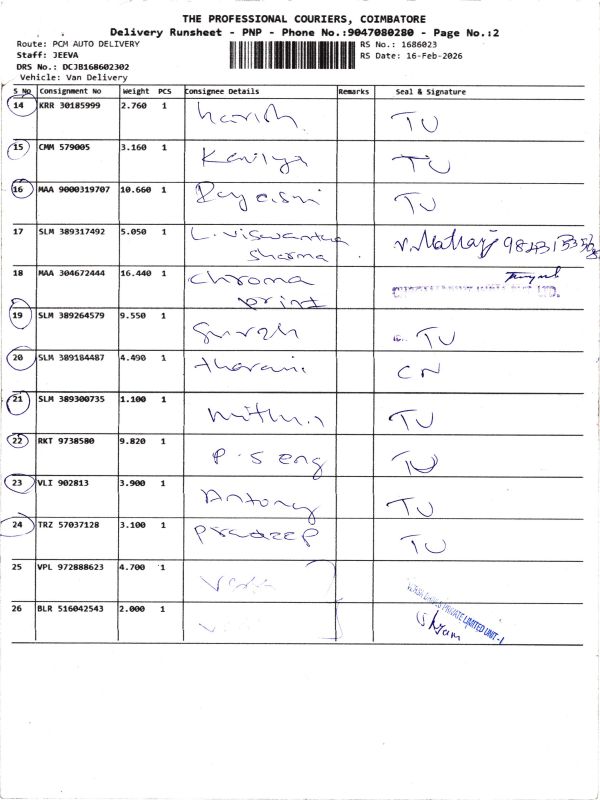 THE PROFESSIONAL COURIERS, COIMBATORE
Delivery Runsheet - PNP - Phone No.:9047080280 - Page No.:2
Route: PCM AUTO DELIVERY
RS No.: 1686023
Staff: JEEVA
RS Date: 16-Feb-2026
DRS No.: DCJB168602302
Vehicle: Van Delivery
S No Consignment No Weight PCS Consignee Details Remarks Seal & Signature
14 KRR 30185999 2.760 1 harish TU
15 CMM 579005 3.160 1 Kaviya TU
16 MAA 9000319707 10.660 1 TU
17 SLM 389317492 5.050 1 L. Viswantha
sharma
18 MAA 304672444 16.440 1 Chroma
print
19 SLM 389264579 9.550 1 Suresh TU
20 SLM 389184487 4.490 1 tharani CN
21 SLM 389300735 1.100 1 mithun TU
22 RKT 9738580 9.820 1 P.S eng TU
23 VLI 902813 3.900 1 Antony TU
24 TRZ 57037128 3.100 1 Pradeep TU
25 VPL 972888623 4.700 1
26 BLR 516042543 2.000 1
PRIVATE LIMITED UNIT - I